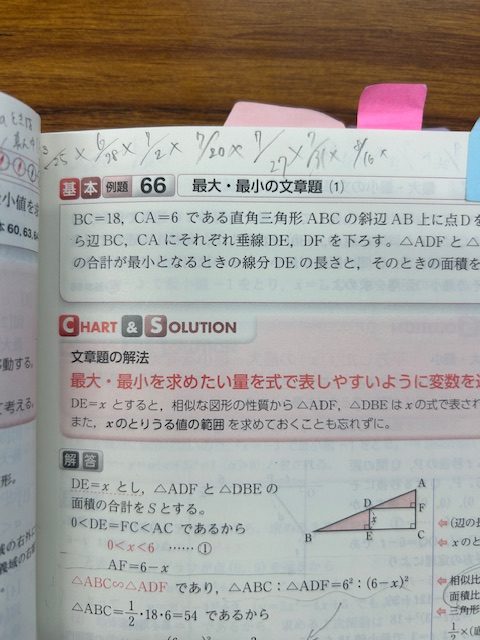 6/28 × 7/2 × 7/20 × 7/27 × 7/31 × 8/16 ×
基本 例題 66 最大・最小の文章題 (1)
BC=18, CA=6 である直角三角形 ABC の斜辺 AB 上に点 D を
ら辺 BC, CA にそれぞれ垂線 DE, DF を下ろす。△ADF と △
の合計が最小となるときの線分 DE の長さと,そのときの面積を
本 60,63,6
CHART & SOLUTION
文章題の解法
最大・最小を求めたい量を式で表しやすいように変数を
DE=x とすると,相似な図形の性質から △ADF, △DBE は x の式で表され
また,x のとりうる値の範囲 を求めておくことも忘れずに。
移動する。
て考える。
解答
DE=x とし,△ADF と △DBE の
面積の合計を S とする。
0<DE=FC<AC であるから
0<x<6 ……①
AF=6-x
△ABC∽△ADF であり,△ABC:△ADF=6²:(6-x)²
△ABC=1/2・18・6=54 であるから
A
D
F
x
B
E
C
⇐(辺の長
⇐x のと
⇐相似比
面積比
⇐三角形
1/2×(底